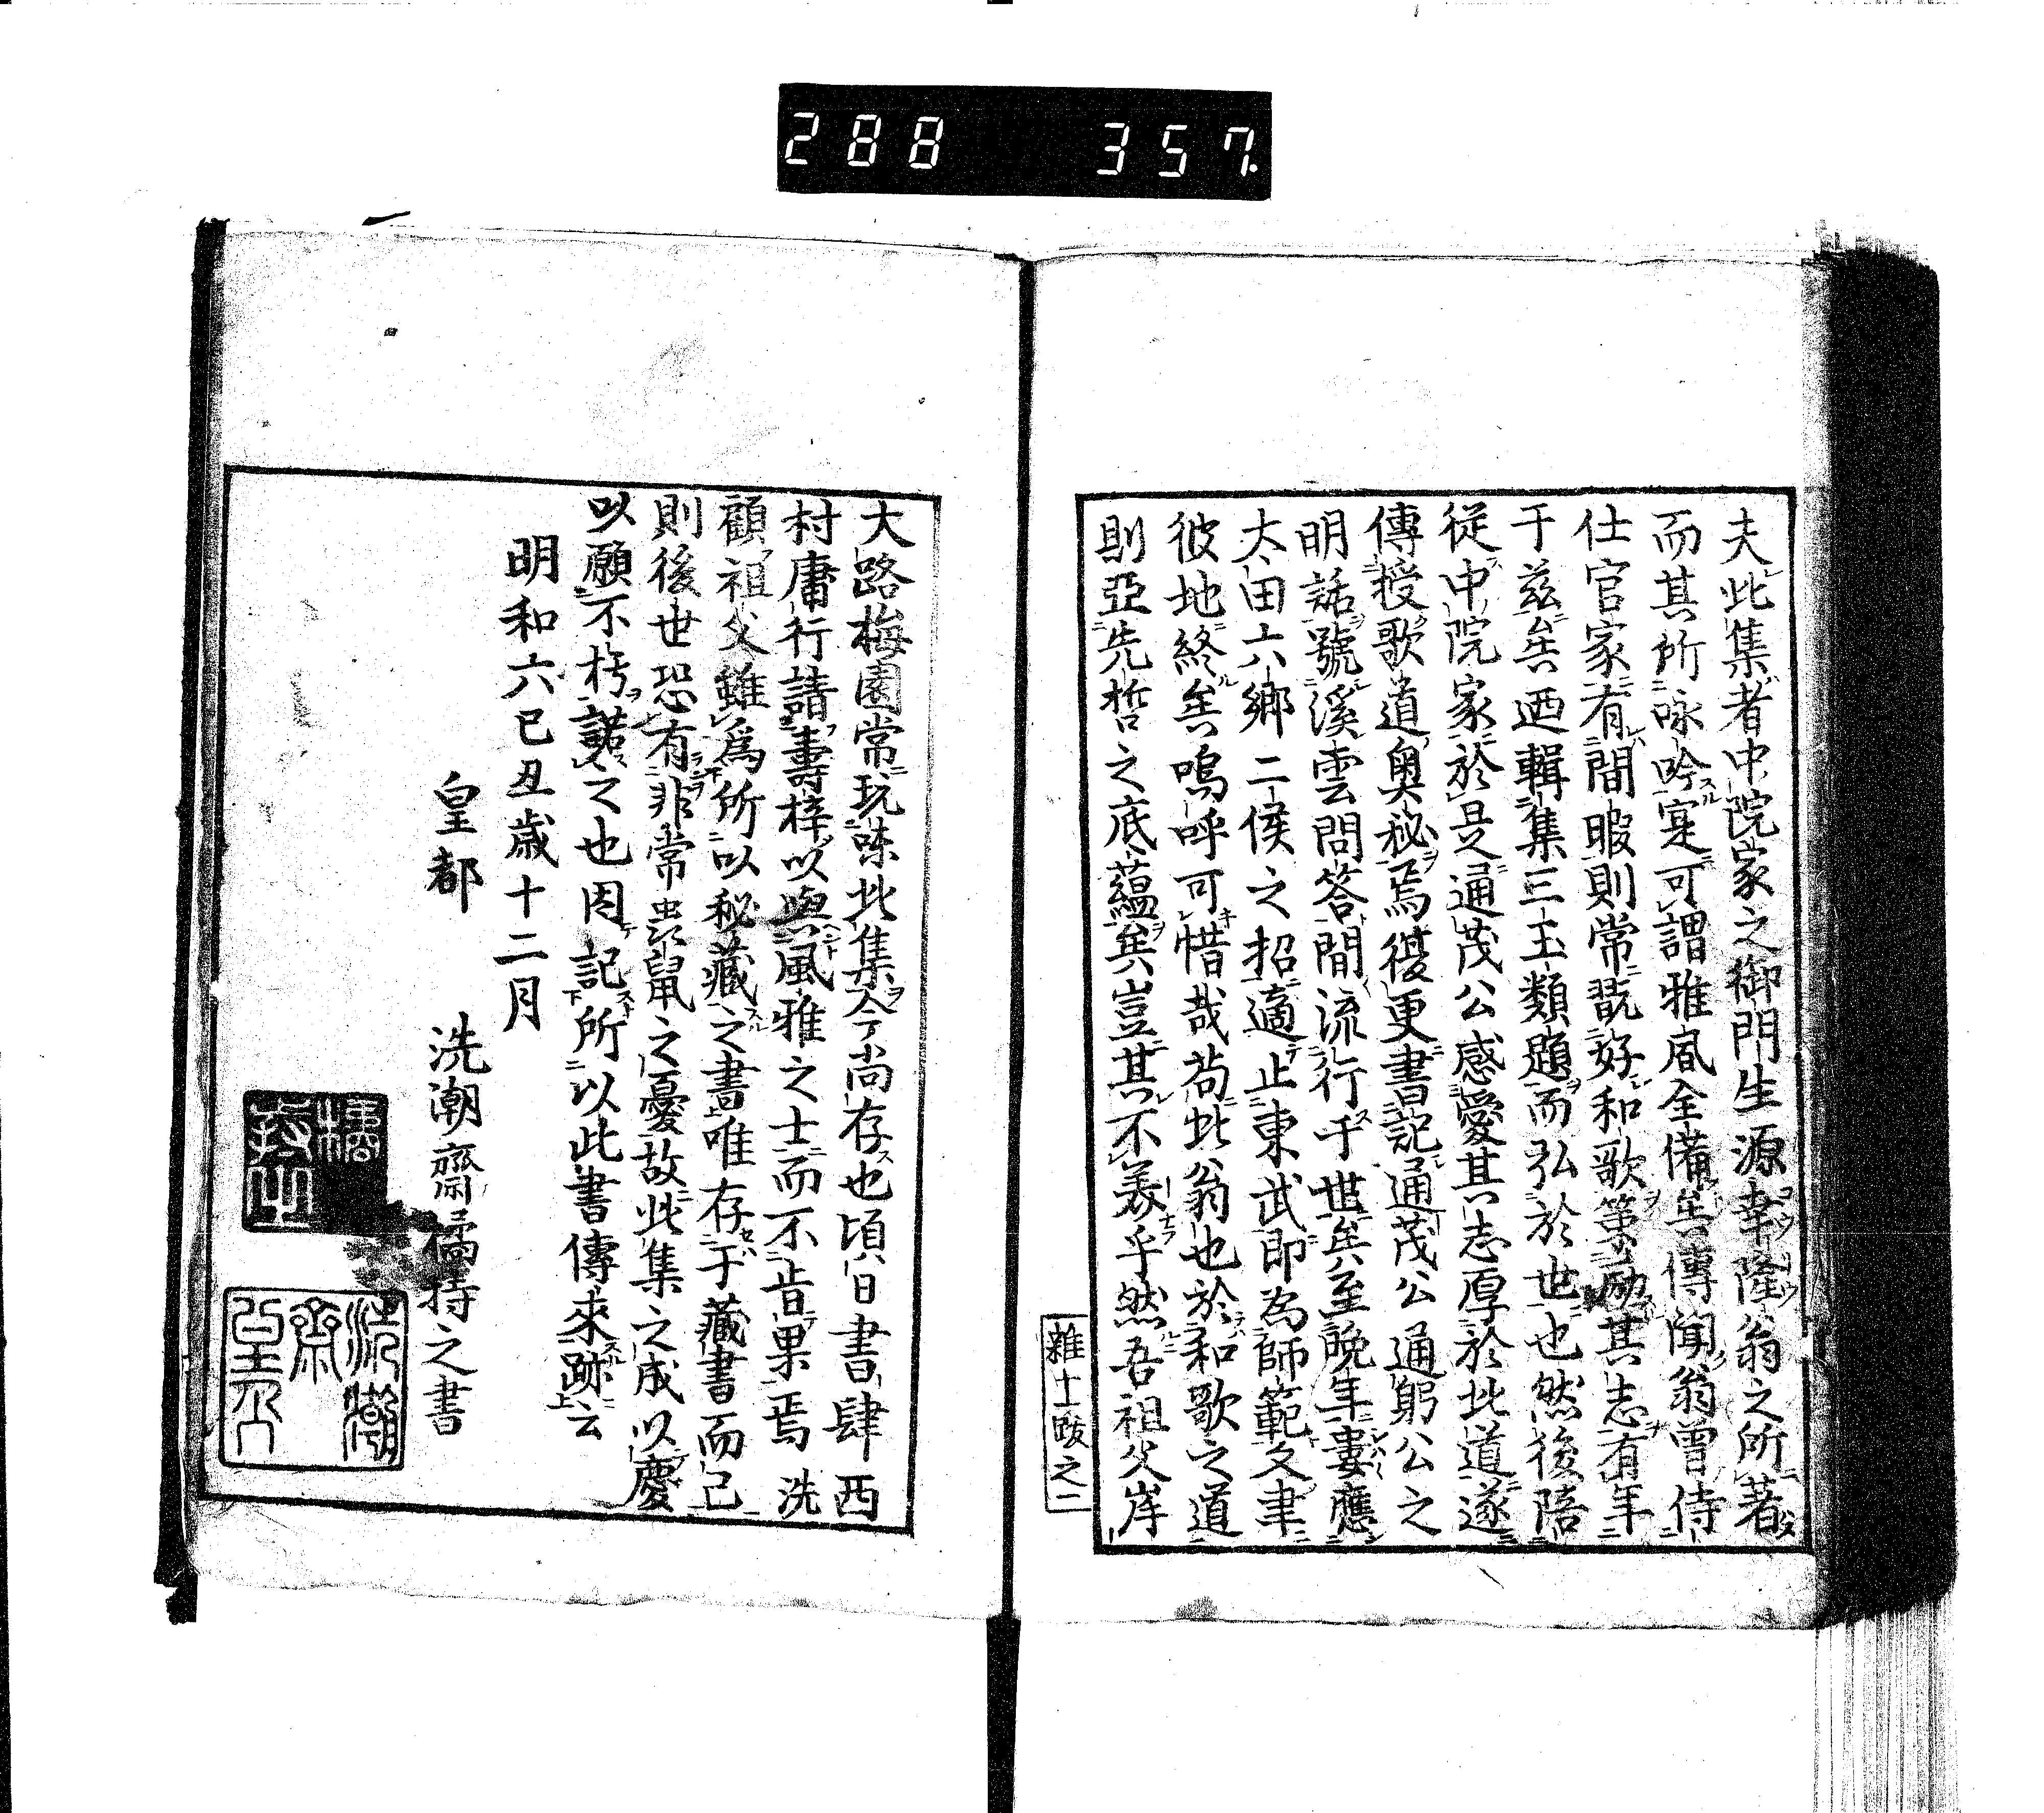 288 357.
夫此集者中院家之御門生源幸隆翁之所著
而其所咏吟寔可謂雅風全備矣傳聞翁曽侍
仕官家有間暇則常翫好和歌第励其志有年
于茲矣迺輯集三玉類題而弘於世也然後陪
從中院家於是通茂公感愛其志厚於此道遂
傳授歌道奥秘焉復更書記通茂公通躬公之
明話號溪雲問答間流行于世矣至晩年婁應
太田六郷二侯之招適止東武即為師範文聿
彼地終矣嗚呼可惜哉苟此翁也於和歌之道
則亞先哲之底蘊矣豈其不羨乎然吾祖父岸
雜十跋之一
大路梅園常玩味此集今尚存也頃日書肆西
村庸行請壽梓以與風雅之士而不肯果焉洗
顧祖父雖爲所以秘藏之書唯存于藏書而已
則後世恐有非常虫鼠之憂故此集之成以慶
以願不朽諾之也因記所以此書傳來跡云
明和六己丑歳十二月
皇都 洗潮齋橘持之書
洗潮齋